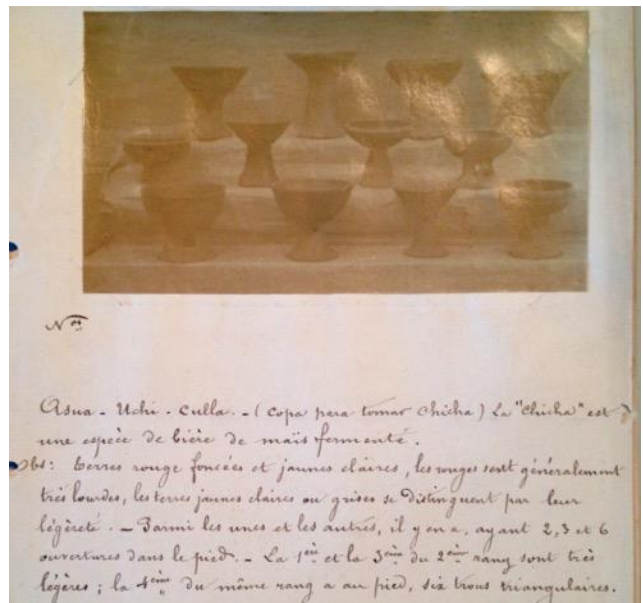 Nos
Asua - Uchi - Culla. - (copa para tomar Chicha) La "Chicha" est
une espèce de bière de maïs fermenté.
Obs: Terres rouge foncées et jaunes claires, les rouges sont généralement
très lourdes, les terres jaunes claires ou grises se distinguent par leur
légèreté. - Parmi les unes et les autres, il y en a, ayant 2, 3 et 6
ouvertures dans le pied. - La 1ère et la 3ème du 2ème rang sont très
légères; la 4ème du même rang a au pied, six trous triangulaires.